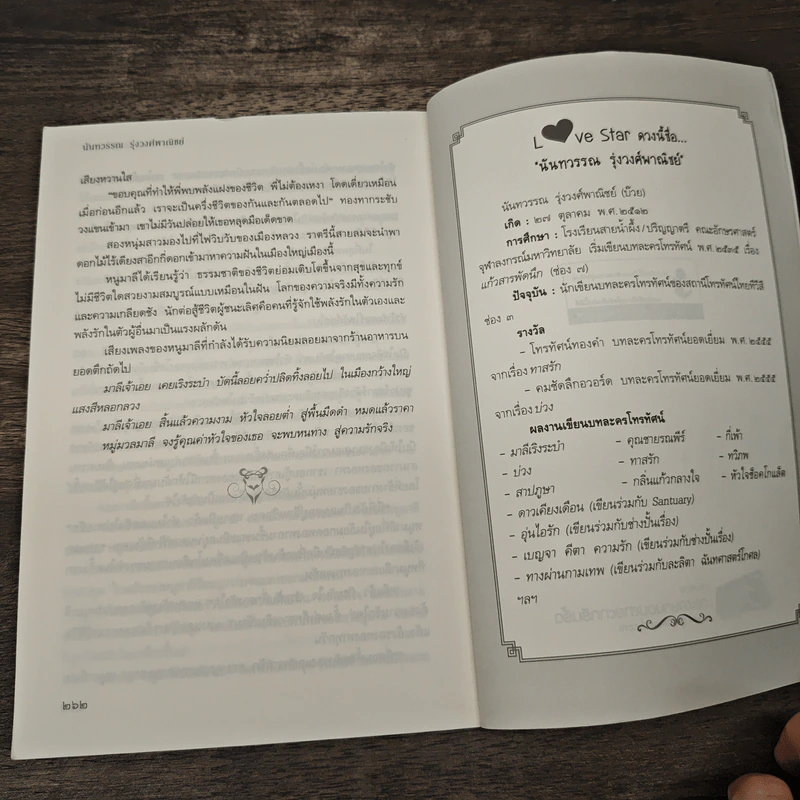 นันทวรรณ รุ่งวงศ์พาณิชย์
เสียงหวานใส
"ขอบคุณที่ทำให้พี่พบพลังแฝงของชีวิต พี่ไม่ต้องเหงา โดดเดี่ยวเหมือน
เมื่อก่อนอีกแล้ว เราจะเป็นครึ่งชีวิตของกันและกันตลอดไป" ทองทากระชับ
วงแขนเข้ามา เขาไม่มีวันปล่อยให้เธอหลุดมือเด็ดขาด
สองหนุ่มสาวมองไปที่ไฟวิบวับของเมืองหลวง ราตรีนี้สายลมจะนำพา
ดอกไม้ไร้เดียงสาอีกกี่ดอกเข้ามาหาความฝันในเมืองใหญ่เมืองนี้
หนูมาลีได้เรียนรู้ว่า ธรรมชาติของชีวิตย่อมเติบโตขึ้นจากสุขและทุกข์
ไม่มีชีวิตใดสวยงามสมบูรณ์แบบเหมือนในฝัน โลกของความจริงมีทั้งความรัก
และความเกลียดชัง นักต่อสู้ชีวิตผู้ชนะเลิศคือคนที่รู้จักใช้พลังรักในตัวเองและ
พลังรักในตัวผู้อื่นมาเป็นแรงผลักดัน
เสียงเพลงของหนูมาลีที่กำลังได้รับความนิยมลอยมาจากร้านอาหารบน
ยอดตึกถัดไป
มาลีเจ้าเอย เคยเริงระบำ บัดนี้ลอยคว่ำปลิดทิ้งลอยไป ในเมืองกว้างใหญ่
แสงสีหลอกลวง
มาลีเจ้าเอย สิ้นแล้วความงาม หัวใจลอยต่ำ สู่พื้นมืดดำ หมดแล้วราคา
หมู่มวลมาลี จงรู้คุณค่าหัวใจของเธอ จะพบหนทาง สู่ความรักจริง
๒๖๒
L ve Star ดวงนี้ชื่อ...
"นันทวรรณ รุ่งวงศ์พาณิชย์"
นันทวรรณ รุ่งวงศ์พาณิชย์ (บ๊วย)
เกิด : ๒๗ ตุลาคม พ.ศ.๒๕๑๒
การศึกษา : โรงเรียนสายน้ำผึ้ง/ปริญญาตรี คณะอักษรศาสตร์
จุฬาลงกรณ์มหาวิทยาลัย เริ่มเขียนบทละครโทรทัศน์ พ.ศ.๒๕๓๕ เรื่อง
แก้วสารพัดนึก (ช่อง ๗)
ปัจจุบัน : นักเขียนบทละครโทรทัศน์ของสถานีโทรทัศน์ไทยทีวีสี
ช่อง ๓
รางวัล
- โทรทัศน์ทองคำ บทละครโทรทัศน์ยอดเยี่ยม พ.ศ.๒๕๕๕
จากเรื่อง ทาสรัก
- คมชัดลึกอวอร์ด บทละครโทรทัศน์ยอดเยี่ยม พ.ศ.๒๕๕๕
จากเรื่อง บ่วง
ผลงานเขียนบทละครโทรทัศน์
- มาลีเริงระบำ - คุณชายรณพีร์ - กี่เพ้า
- บ่วง - ทาสรัก - ทวิภพ
- สาปภูษา - กลิ่นแก้วกลางใจ - หัวใจช็อคโกแล็ต
- ดาวเคียงเดือน (เขียนร่วมกับ Santuary)
- อุ่นไอรัก (เขียนร่วมกับช่างปั้นเรื่อง)
- เบญจา คีตา ความรัก (เขียนร่วมกับช่างปั้นเรื่อง)
- ทางผ่านกามเทพ (เขียนร่วมกับละลิตา ฉันทศาสตร์โกศล)
ฯลฯ